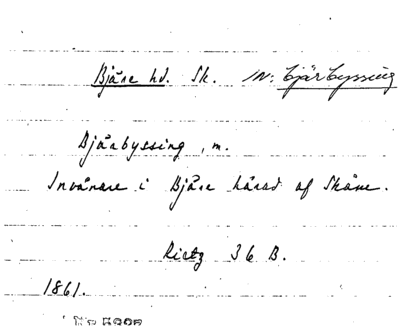 Bjäre hd. Sk. N: bjärbyssing
Bjärbyssing, m.
Invånare i Bjäre härad af Skåne.
Rietz 36 B.
1861.